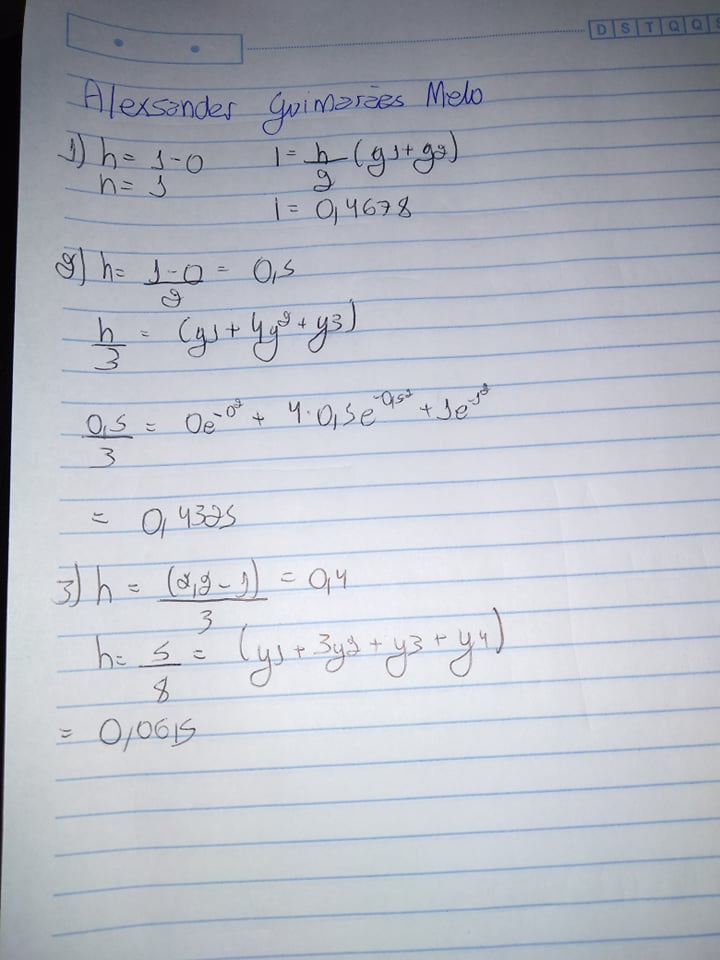 D S T Q Q S
Alexsander Guimarães Melo
1) h = 1-0 I = h/2 (y1+y2)
h = 1
I = 0,4678
2) h = 1-0/2 = 0,5
h/3 = (y1 + 4y2 + y3)
0,5/3 = 0e^-0^2 + 4·0,5e^-0,5^2 + 1e^-1^2
= 0,4325
3) h = (2,2-1)/3 = 0,4
h = 5/8 = (y1 + 3y2 + y3 + y4)
= 0,0615